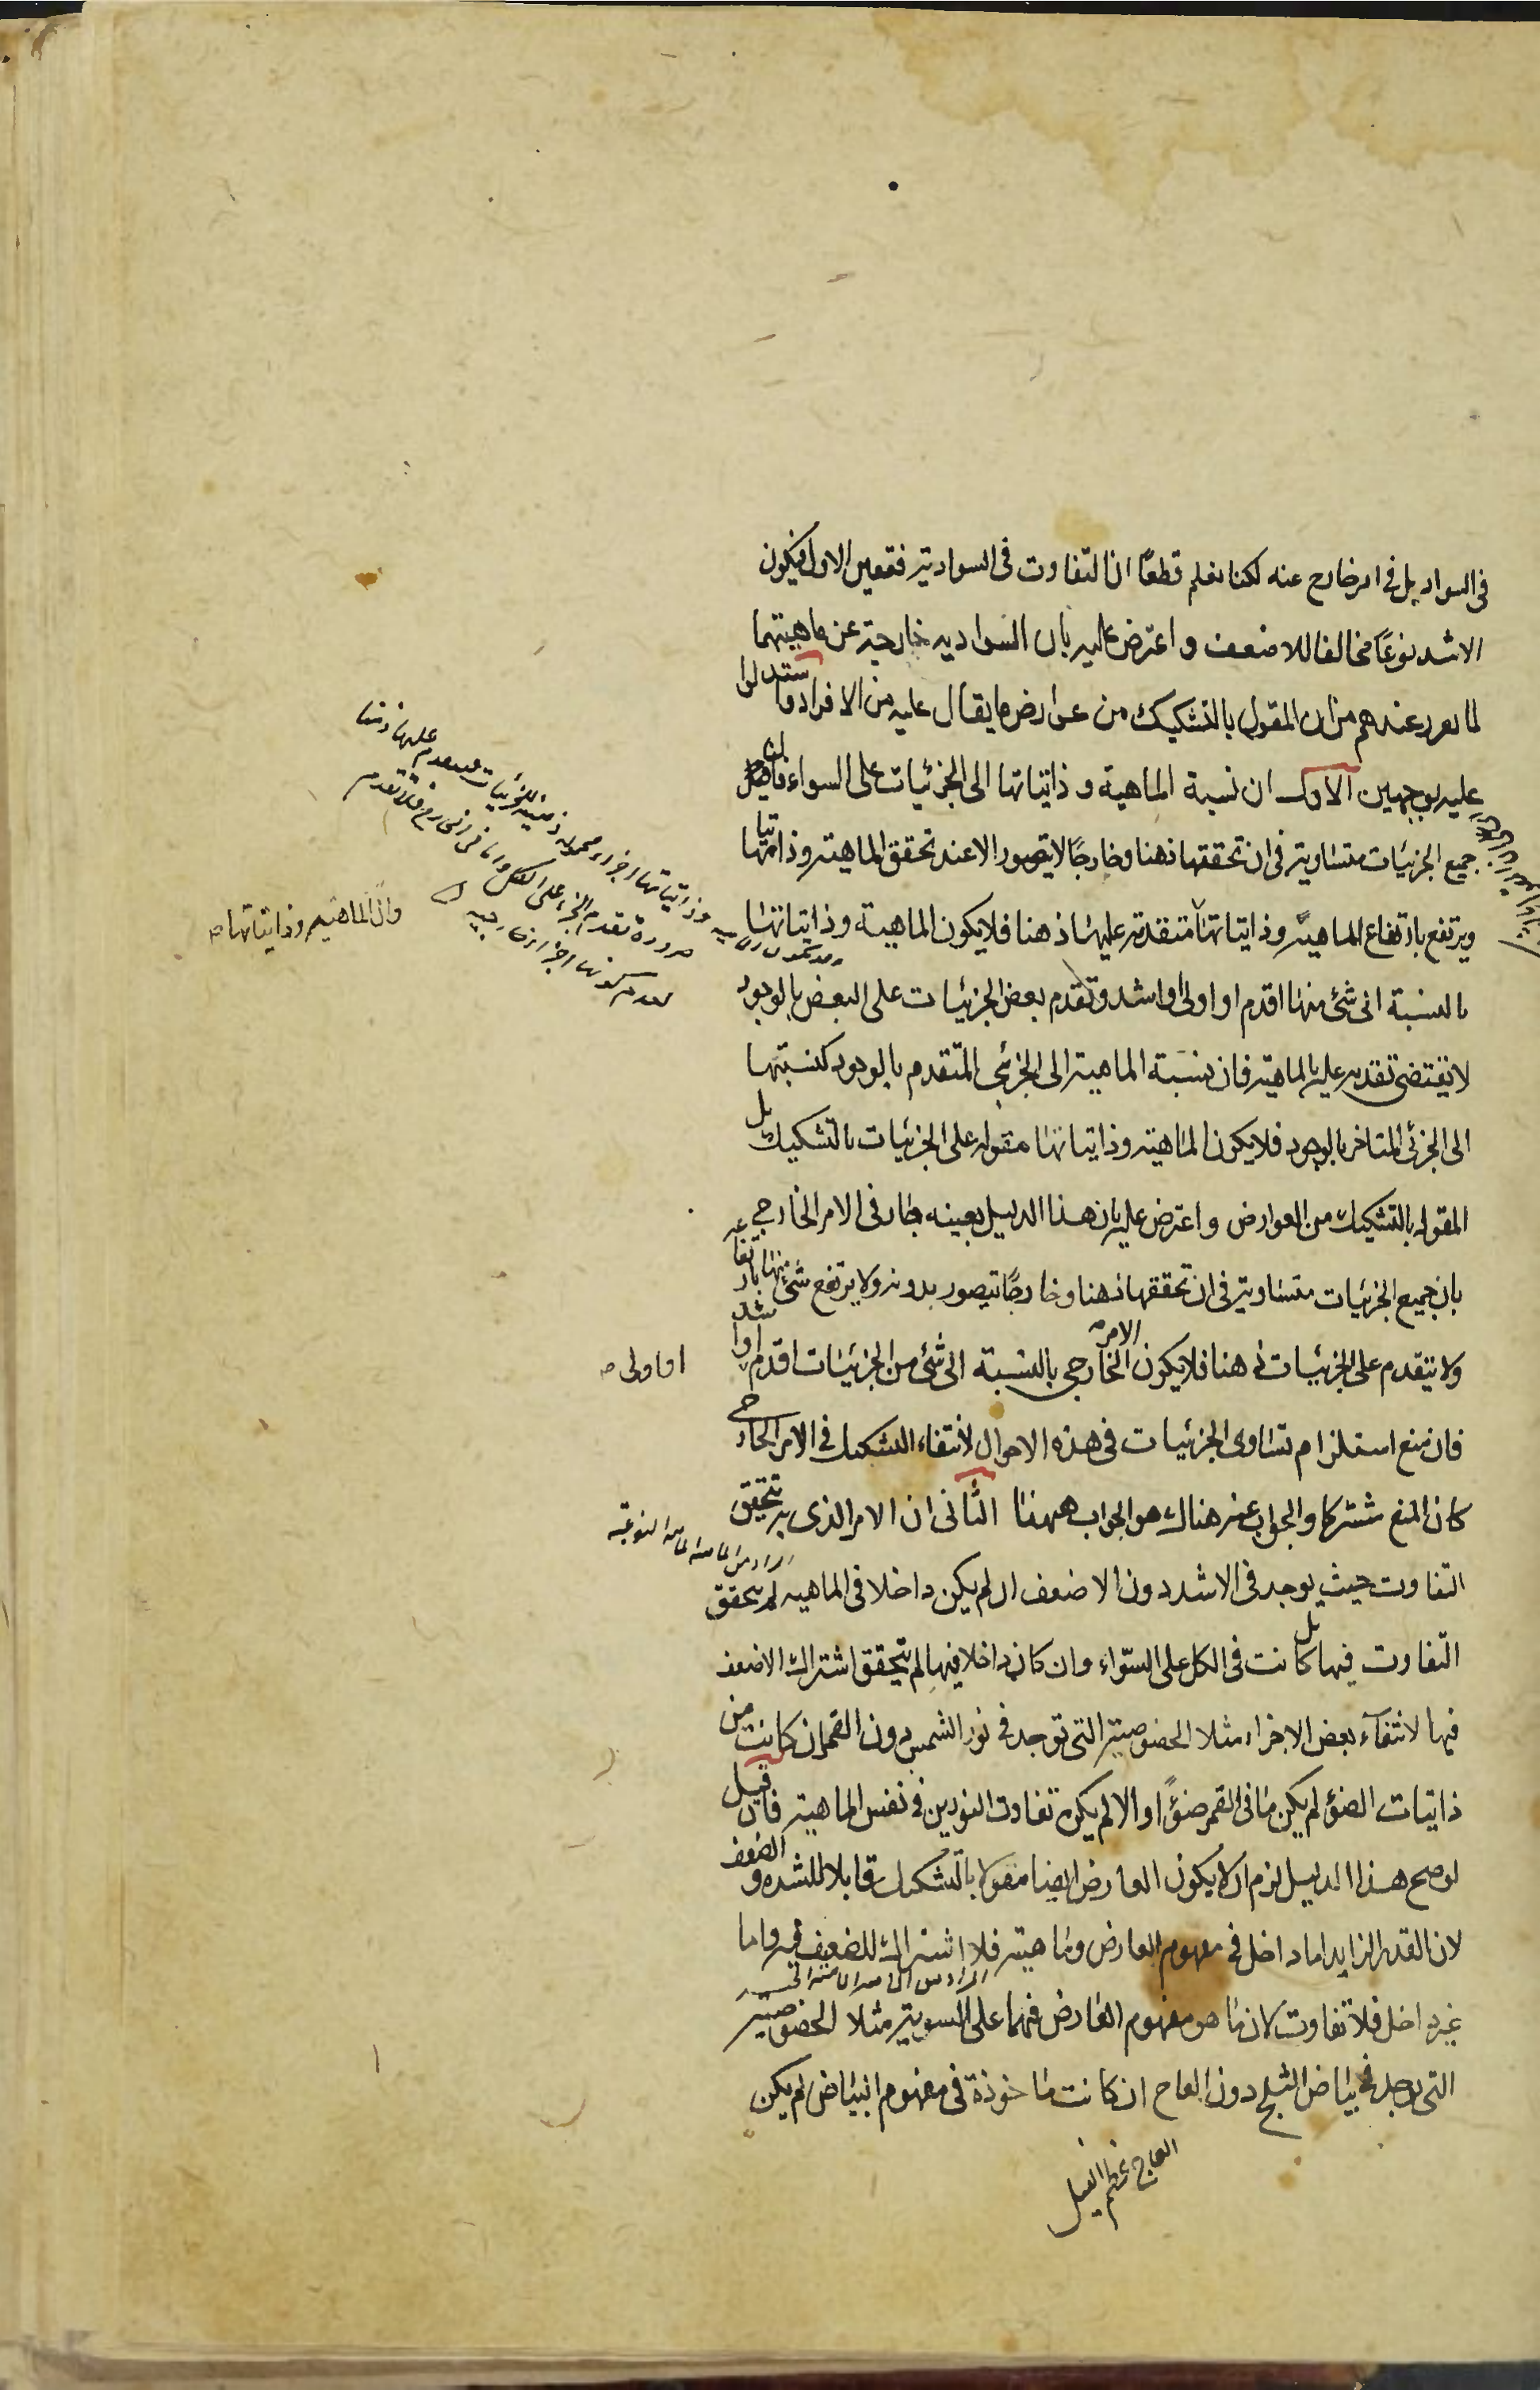 فى السواد بل فى امر خارج عنه لكنا نعلم قطعًا ان التفاوت فى السوادية فتعين الاول فيكون
الاشد نوعًا مخالفا للاضعف و اعترض عليه بان السوادية خارجة عن ماهيتهما
لما تقرر عندهم من ان المقول بالتشكيك من عوارض ما يقال عليه من الافراد و استدلوا
عليه بوجهين الاول ان نسبة الماهية و ذاتياتها الى الجزئيات على السواء فان
جميع الجزئيات متساوية فى ان تحققها ذهنا وخارجًا لا يتصور الا عند تحقق الماهية وذاتياتها
ويرتفع بارتفاع الماهية وذاتياتها متقدمة عليها ذهنا فلا يكون الماهية وذاتياتها
بالنسبة الى شئ منها اقدم او اولى او اشد و تقدم بعض الجزئيات على البعض بالوجود
لا يقتضى تقدمه عليه بالماهية فان نسبة الماهية الى الجزئى المتقدم بالوجود كنسبتها
الى الجزئى المتاخر بالوجود فلا يكون الماهية وذاتياتها مقولة على الجزئيات بالتشكيك بل
المقولة بالتشكيك من العوارض واعترض عليه بان هذا الدليل بعينه جار فى الامر الخارجى
بان جميع الجزئيات متساوية فى ان تحققها ذهنا وخارجًا يتصور بدونه ولا يرتفع شئ منها بارتفاعه
ولا يتقدم على الجزئيات ذهنا فلا يكون الامر الخارجى بالنسبة الى شئ من الجزئيات اقدم او اشد
او اولى
فان منع استلزام تساوى الجزئيات فى هذه الاحوال لانتفاء التشكيك فى الامر الخارجى
كان المنع مشتركا والجواب عنه هناك هو الجواب ههنا الثانى ان الامر الذى به تحقيق
التفاوت حيث يوجد فى الاشد دون الاضعف ان لم يكن داخلا فى الماهية لم يتحقق
التفاوت فيها بل كانت فى الكل على السواء وان كان داخلا فيها لم يتحقق اشتراك الاضعف
فيها لانتفاء بعض الاجزاء مثلا الخصوصية التى توجد فى نور الشمس دون القمر ان كانت من
ذاتيات الضوء لم يكن ما فى القمر ضوءًا والا لم يكن تفاوت النورين فى نفس الماهية فان قيل
لو صح هذا الدليل لزم ان لا يكون العارض ايضا مقولا بالتشكيك قابلا للشدة و الضعف
لان القدر الزايد اما داخل فى مفهوم العارض وماهيته فلا اشتراك للضعيف فيه واما
غير داخل فلا تفاوت لان ما هو مفهوم العارض فيهما على السوية مثلا الخصوصية
التى يوجد فى بياض الثلج دون العاج ان كانت ماخوذة فى مفهوم البياض لم يكن
العاج عظم الفيل
وان الماهية وذاتياتها
ضرورة تقدم الجزء على الكل واما فى الخارج فلا تقدم
لعدم كونها اجزاء خارجية